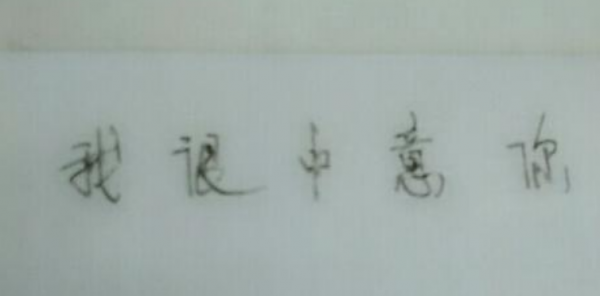 我很中意你